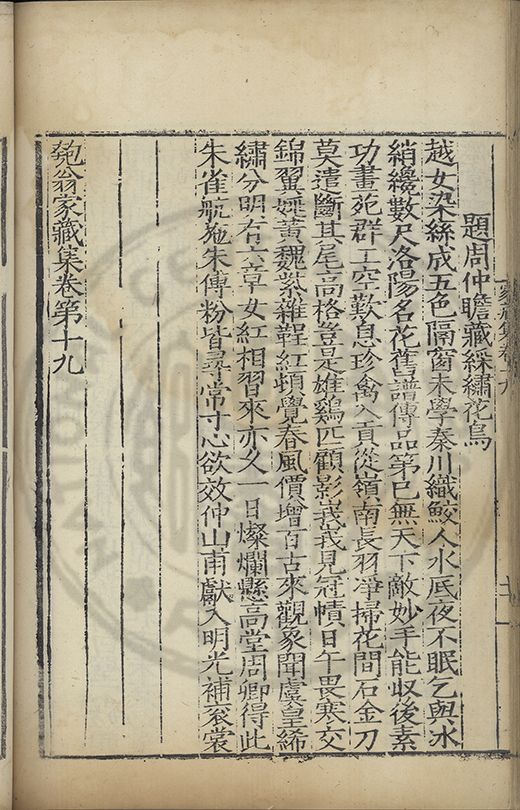 題周仲瞻藏綵繡花鳥
越女染絲成五色隔窗未學秦川織鮫人水底夜不眠乞與氷
綃纔數尺洛陽名花舊譜傳品第已無天下敵妙手能收後素
功畫苑群工空歎息珍禽入貢從嶺南長羽凈掃花間石金刀
莫遣斷其尾高格豈是雄鷄匹顧影峩峩見冠幘日午畏寒交
錦翼姚黃魏紫雜鞓紅頓覺春風價增百古來觀象聞虞皇絺
繡分明右六章女紅相習來亦久一日燦爛懸高堂周卿得此
朱雀航施朱傅粉皆尋常寸心欲效仲山甫獻入明光補袞裳
匏翁家藏集卷第十九